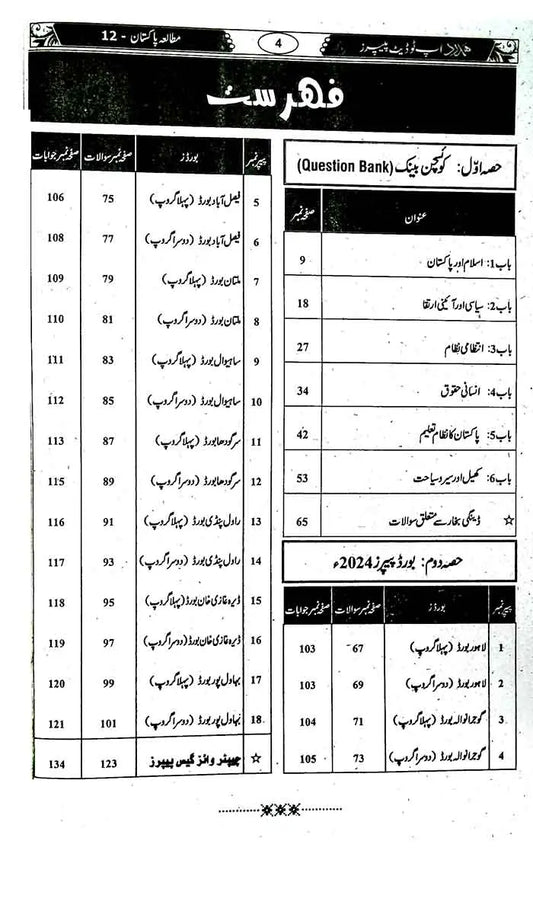 ہمدرد اپ ٹو ڈیٹ پیپرز
4
مطالعہ پاکستان - 12
فہرست
حصہ اوّل: کوئسچن بینک (Question Bank)
عنوان صفحہ نمبر
باب1: اسلام اور پاکستان 9
باب2: سیاسی اور آئینی ارتقا 18
باب3: انتظامی نظام 27
باب4: انسانی حقوق 34
باب5: پاکستان کا نظام تعلیم 42
باب6: کھیل اور سیر و سیاحت 53
☆ ڈینگی بخار سے متعلق سوالات 65
حصہ دوم: بورڈ پیپرز 2024ء
پیپر نمبر بورڈز صفحہ نمبر سوالات صفحہ نمبر جوابات
1 لاہور بورڈ (پہلا گروپ) 67 103
2 لاہور بورڈ (دوسرا گروپ) 69 103
3 گوجرانوالہ بورڈ (پہلا گروپ) 71 104
4 گوجرانوالہ بورڈ (دوسرا گروپ) 73 105
پیپر نمبر بورڈز صفحہ نمبر سوالات صفحہ نمبر جوابات
5 فیصل آباد بورڈ (پہلا گروپ) 75 106
6 فیصل آباد بورڈ (دوسرا گروپ) 77 108
7 ملتان بورڈ (پہلا گروپ) 79 109
8 ملتان بورڈ (دوسرا گروپ) 81 110
9 ساہیوال بورڈ (پہلا گروپ) 83 111
10 ساہیوال بورڈ (دوسرا گروپ) 85 112
11 سرگودھا بورڈ (پہلا گروپ) 87 113
12 سرگودھا بورڈ (دوسرا گروپ) 89 115
13 راولپنڈی بورڈ (پہلا گروپ) 91 116
14 راولپنڈی بورڈ (دوسرا گروپ) 93 117
15 ڈیرہ غازی خان بورڈ (پہلا گروپ) 95 118
16 ڈیرہ غازی خان بورڈ (دوسرا گروپ) 97 119
17 بہاولپور بورڈ (پہلا گروپ) 99 120
18 بہاولپور بورڈ (دوسرا گروپ) 101 121
☆ چیپٹر وائز گیس پیپرز 123 134